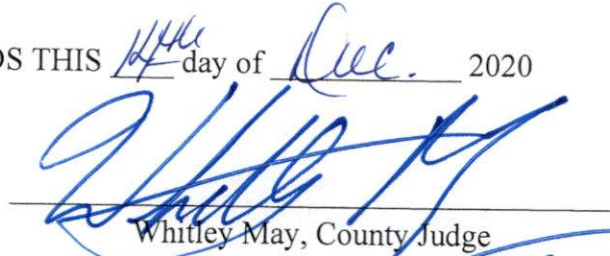 OS THIS 14th day of Dec. 2020
Whitley May, County Judge